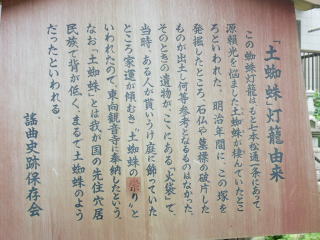 「土蜘蛛」灯籠 由来
この蜘蛛灯籠はもと七本松通一条にあって、
源頼光を悩ました土蜘蛛が棲んでいたとこ
ろといわれた。明治年間に、この塚を
発掘したところ、石仏や墓標の破片した
ものが出土し何等参考となるものはなかった。
そのときの遺物が、ここにある“火袋”で、
当時、ある人が貰いうけ庭に飾っていた
ところ家運が傾むき“土蜘蛛の祟り”と
いわれたので、東向観音寺に奉納したという。
なお「土蜘蛛」とは我が国の先住穴居
民族で背が低く、まるで土蜘蛛のよう
だったといわれる。
謡曲史跡保存会